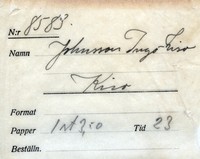 N:r 8583.
Namn Johnsson Inga-Lisa
Kiso
Format
Papper 1 st 7,50 Tid 23
Beställn.